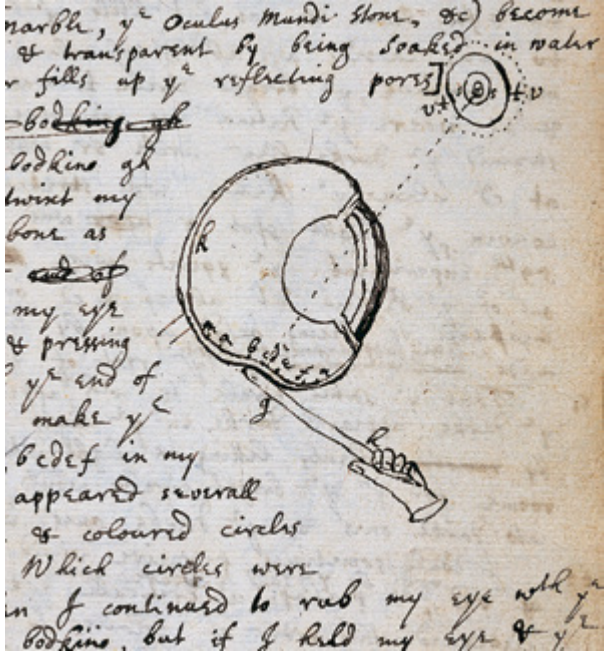 marble, yͤ Oculus Mundi stone, &c) become
& transparent by being soaked in water
r fills up yͤ reflecting pores]
bodking gh
bodkine gh
twixt my
bone as
end of
my eye
& pressing
yͤ end of
make yͤ
bcdef in my
appeared severall
& coloured circles
Which circles were
en I continued to rub my eye with yͤ
bodkine, but if I held my eye & yͤ